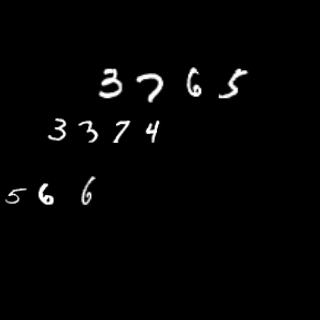 3 7 6 5
3 3 7 4
5 6 6